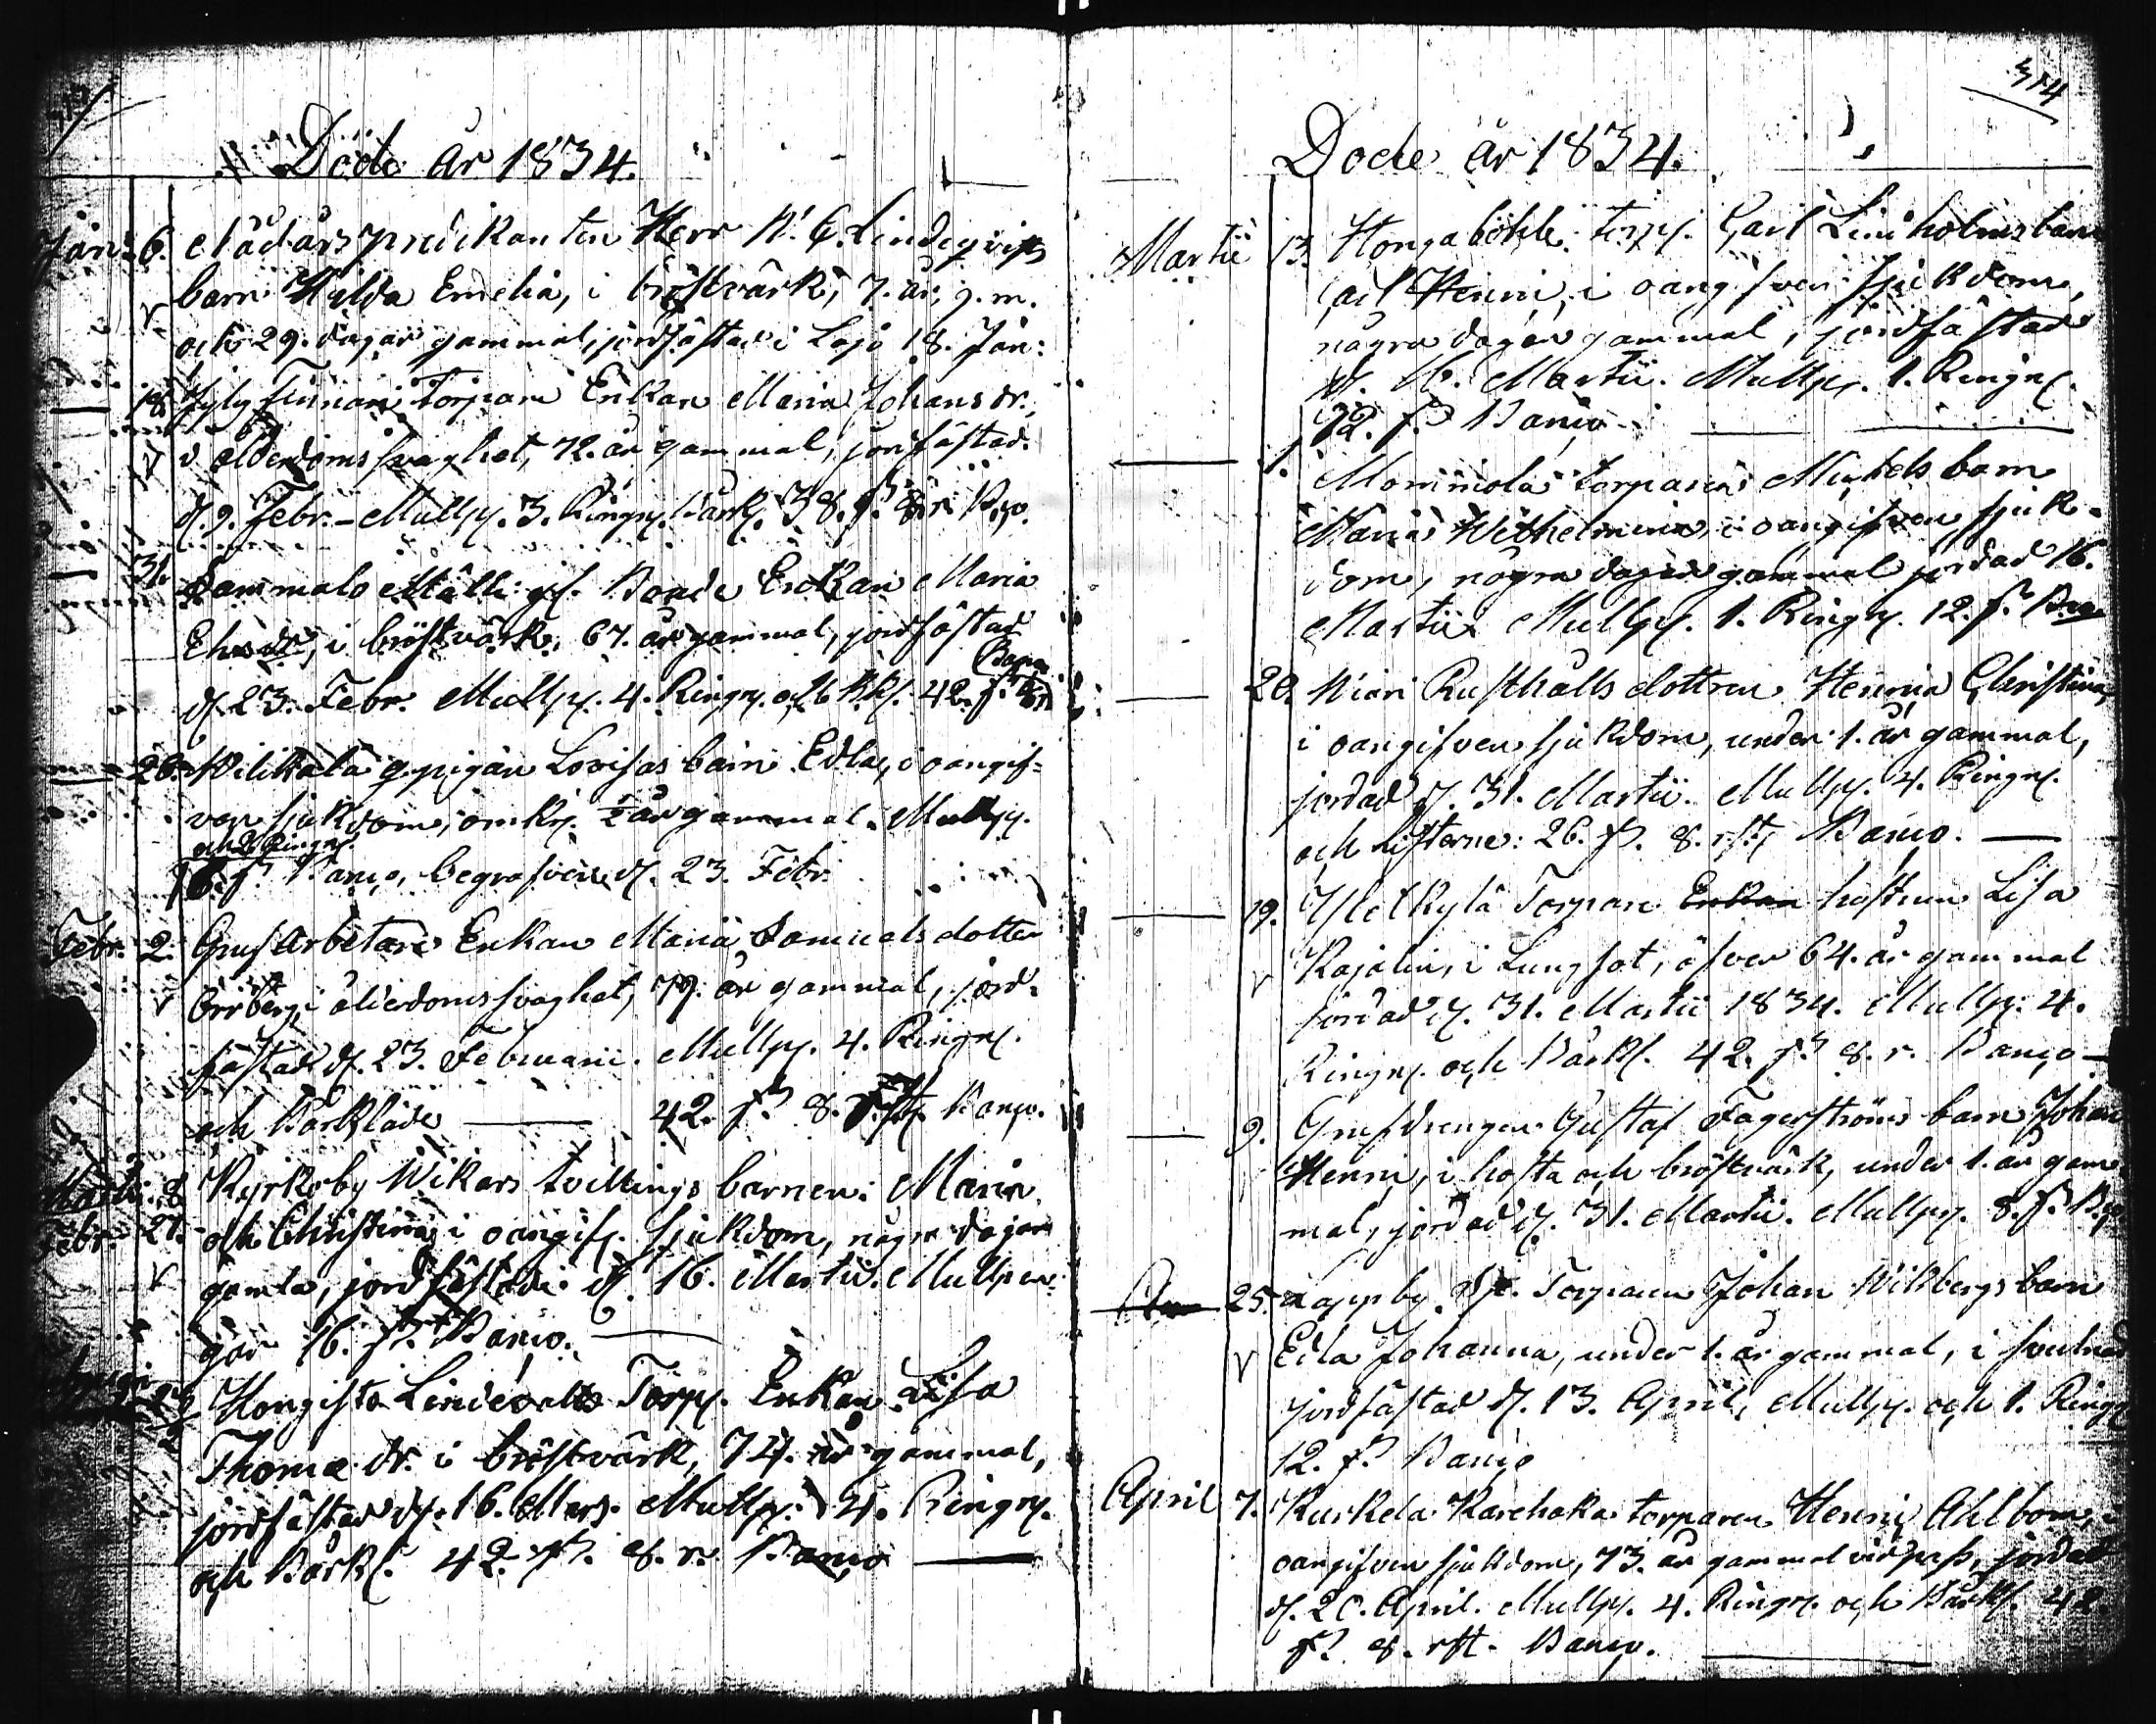 Döde år 1834.
Jan: 6. Nådårspredikanten Herr N. G. Lindeqvists
barn Hilda Emelia, i bröstvärk, 7. år, 9. m.
och 29. dagar gammal, jordfästad i Lojo 18. Jan:
18. Torpare Enkan Maria Johans dr.,
i ålderdomssvaghet, 72. år gammal, jordfästad.
d. 9. Febr. Mullp. 3. Ringn. Bårkl. 38. 8. r. Bco.
31. Gammals Bonde Enkan Maria
i bröstvärk, 67. år gammal, jordfästad
d. 23. Febr. Mullp. 4. Ringn. och Bkl. 42. Banco
26. pigan Lovisas barn Edla, i oangif-
ven sjukdom, omkr. ½ år gammal. Mullp.
och 2 Ringn.
16. Banco, begrafven d. 23. Febr.
Febr. 2. Grufarbetare Enkan Maria Samuels dotter
Örrberg, i ålderdomssvaghet, 79. år gammal, jord-
fästad d. 23. Februarii. Mullp. 4. Ringn.
och Bårkläde 42. 8. Banco.
8. Kyrkoby Wikars tvillings barnen: Maria
Febr. 27. och Christina, i oangif. sjukdom, några dagar
gamla, jordfästade d. 16. Martii. Mullpen-
gar 16. Banco.
Torp. Enkan Lisa
Thomæ dr. i bröstvärk, 74. år gammal,
jordfästad d. 16. Mars. Mullp. 4. Ringn.
och Bårkl. 42. 8. r. Banco
314
Döde år 1834.
Martii 13. Hongaböhle torp. Carl Lindholms barn
Carl Henric, i oangifven sjukdom,
några dagar gammal, jordfästad
d. 16. Martii. Mullp. 1. Ringn.
12. Banco
1. Mommola torparens Michels barn
Maria Wilhelmina, i oangifven sjuk-
dom, några dagar gammal jordad 16.
Martii Mullp. 1. Ringn. 12. Bco
20. Wiari Rusthålls dottren Henrica Christina,
i oangifven sjukdom, under 1. år gammal,
jordad d. 31. Martii. Mullp. 4. Ringn.
och 26. 8. rst. Banco.
19. Torpare Enkan hustrun Lisa
Kajalin, i Lungsot, öfver 64. år gammal
jordad d. 31. Martii 1834. Mullp. 4.
Ringn. och Bårkl. 42. 8. r. Banco
9. Grufdrengen Gustaf Fagerströms barn Johan
Henric, i hosta och bröstvärk, under 1. år gam-
mal, jordad d. 31. Martii. Mullp. 8. Bco
25. Lappby Torparen Johan Wikbergs barn
Edla Johanna, under 1. år gammal, i svulnad
jordfästad d. 13. April, Mullp. och 1. Ringn.
12. Banco
April 7. Kurkela torparen Henric Ahlbom, i
oangifven sjukdom, 73. år gammal vid pass, jordad
d. 20. April. Mullp. 4. Ringn. och Bårkl. 42.
8. rst. Banco.